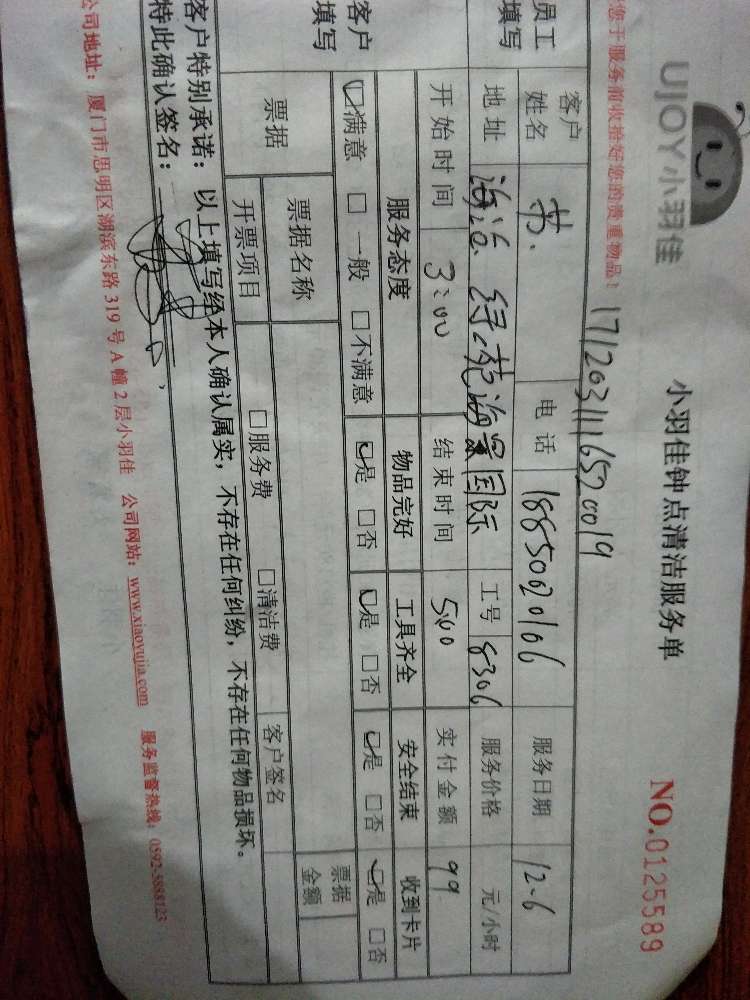 UJOY小羽佳
小羽佳钟点清洁服务单
NO.0125589
您于服务前收拾好您的贵重物品！
1712031116520019
员工填写
客户姓名 苏 电话 18850620106 服务日期 12.6
地址 海沧 绿苑海景国际 工号 8306 服务价格 元/小时
开始时间 3:00 结束时间 5:00 实付金额 99
客户填写
服务态度 物品完好 工具齐全 安全结束 收到卡片
☑满意 □一般 □不满意 ☑是 □否 ☑是 □否 ☑是 □否 ☑是 □否
票据 票据名称 票据金额
开票项目 □服务费 □清洁费 客户签名
客户特别承诺：以上填写经本人确认属实，不存在任何纠纷，不存在任何物品损坏。
特此确认签名：
公司地址：厦门市思明区湖滨东路 319 号 A 幢 2 层小羽佳 公司网站：www.xiaoyujia.com 服务监督热线：0592-5888123